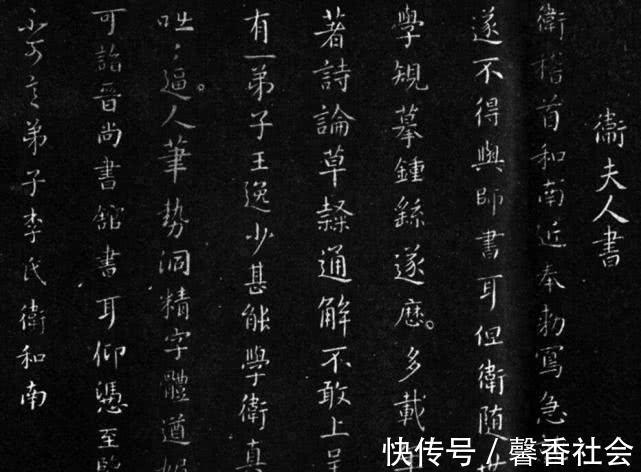 衞夫人書
衞稽首和南近奉勑寫急
遂不得與師書耳但衞随
學規摹鍾繇遂歷多載
著詩論草隸通解不敢上呈
有一弟子王逸少甚能學衞真
咄咄逼人筆勢洞精字體遒媚
可詣晉尚書舘書耳仰憑至鑒
弟子李氏衞和南
快传号/馨香社会